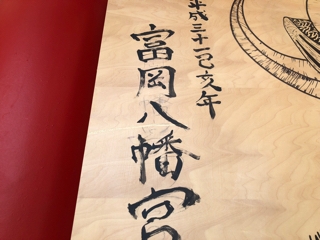 平成三十一己亥年
富岡八幡宮